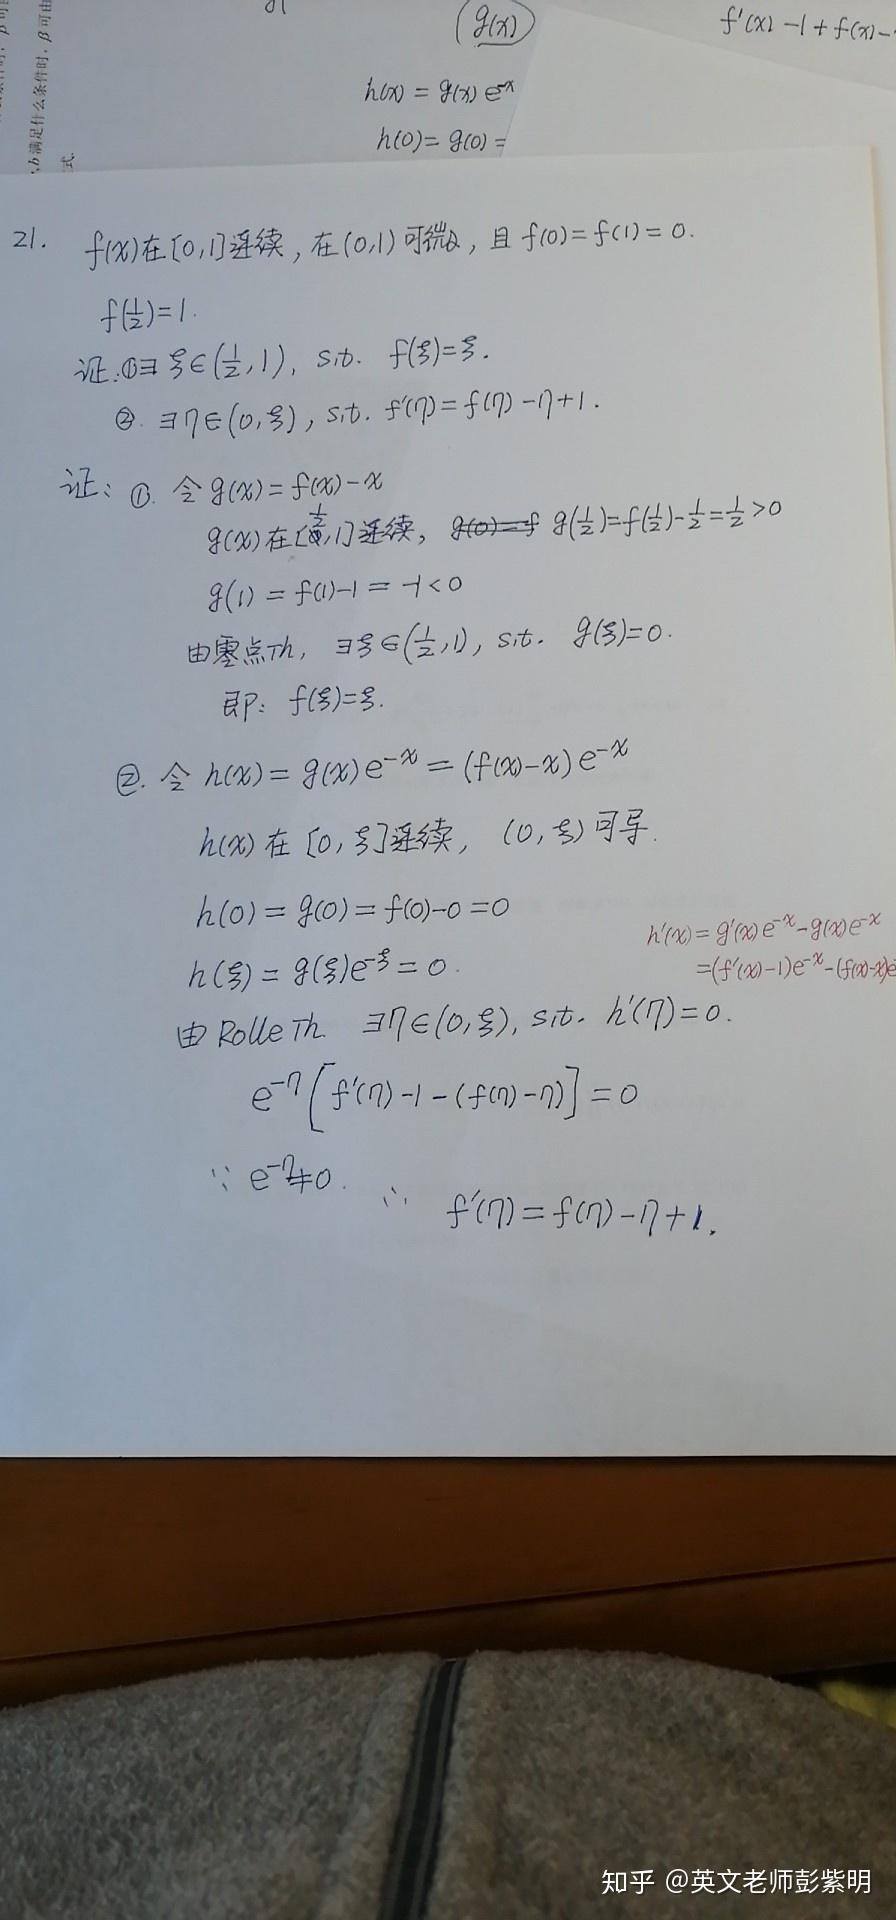 (g(x))
f'(x)-1+f(x)-
h(x) = g(x) e^{-x}
h(0) = g(0) =
,b满足什么条件时, β可由
式.
21. f(x)在[0,1]连续, 在(0,1)可微, 且 f(0)=f(1)=0.
f(1/2)=1.
证:①∃ξ∈(1/2,1), s.t. f(ξ)=ξ.
②.∃η∈(0,ξ), s.t. f'(η)=f(η)-η+1.
证: ①. 令 g(x)=f(x)-x
g(x)在[1/2,1]连续, g(0)=f g(1/2)=f(1/2)-1/2=1/2>0
g(1)=f(1)-1=-1<0
由零点Th, ∃ξ∈(1/2,1), s.t. g(ξ)=0.
即: f(ξ)=ξ.
②. 令 h(x)=g(x)e^{-x}=(f(x)-x)e^{-x}
h(x)在[0,ξ]连续, (0,ξ)可导.
h(0)=g(0)=f(0)-0=0
h(ξ)=g(ξ)e^{-ξ}=0.
h'(x)=g'(x)e^{-x}-g(x)e^{-x}
=(f'(x)-1)e^{-x}-(f(x)-x)e
由Rolle Th. ∃η∈(0,ξ), s.t. h'(η)=0.
e^{-η}[f'(η)-1-(f(η)-η)]=0
∵ e^{-η}≠0. ∴ f'(η)=f(η)-η+1.
知乎 @英文老师彭紫明